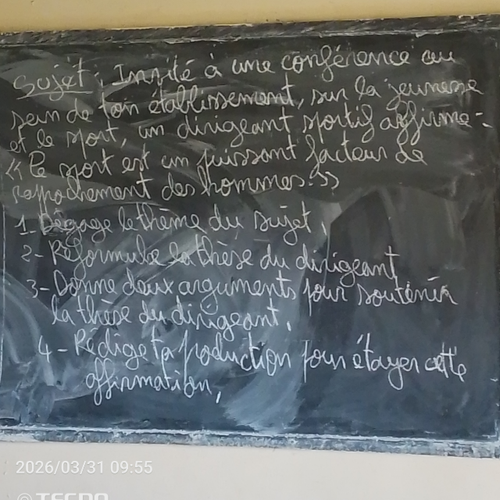 Sujet : Invité à une conférence au
sein de ton établissement, sur la jeunesse
et le sport, un dirigeant sportif affirme :
« Le sport est un puissant facteur de
rapprochement des hommes. »
1- Dégage le thème du sujet,
2- Reformule la thèse du dirigeant
3- Donne deux arguments pour soutenir
la thèse du dirigeant.
4- Rédige ta production pour étayer cette
affirmation,
2026/03/31 09:55
TECNO